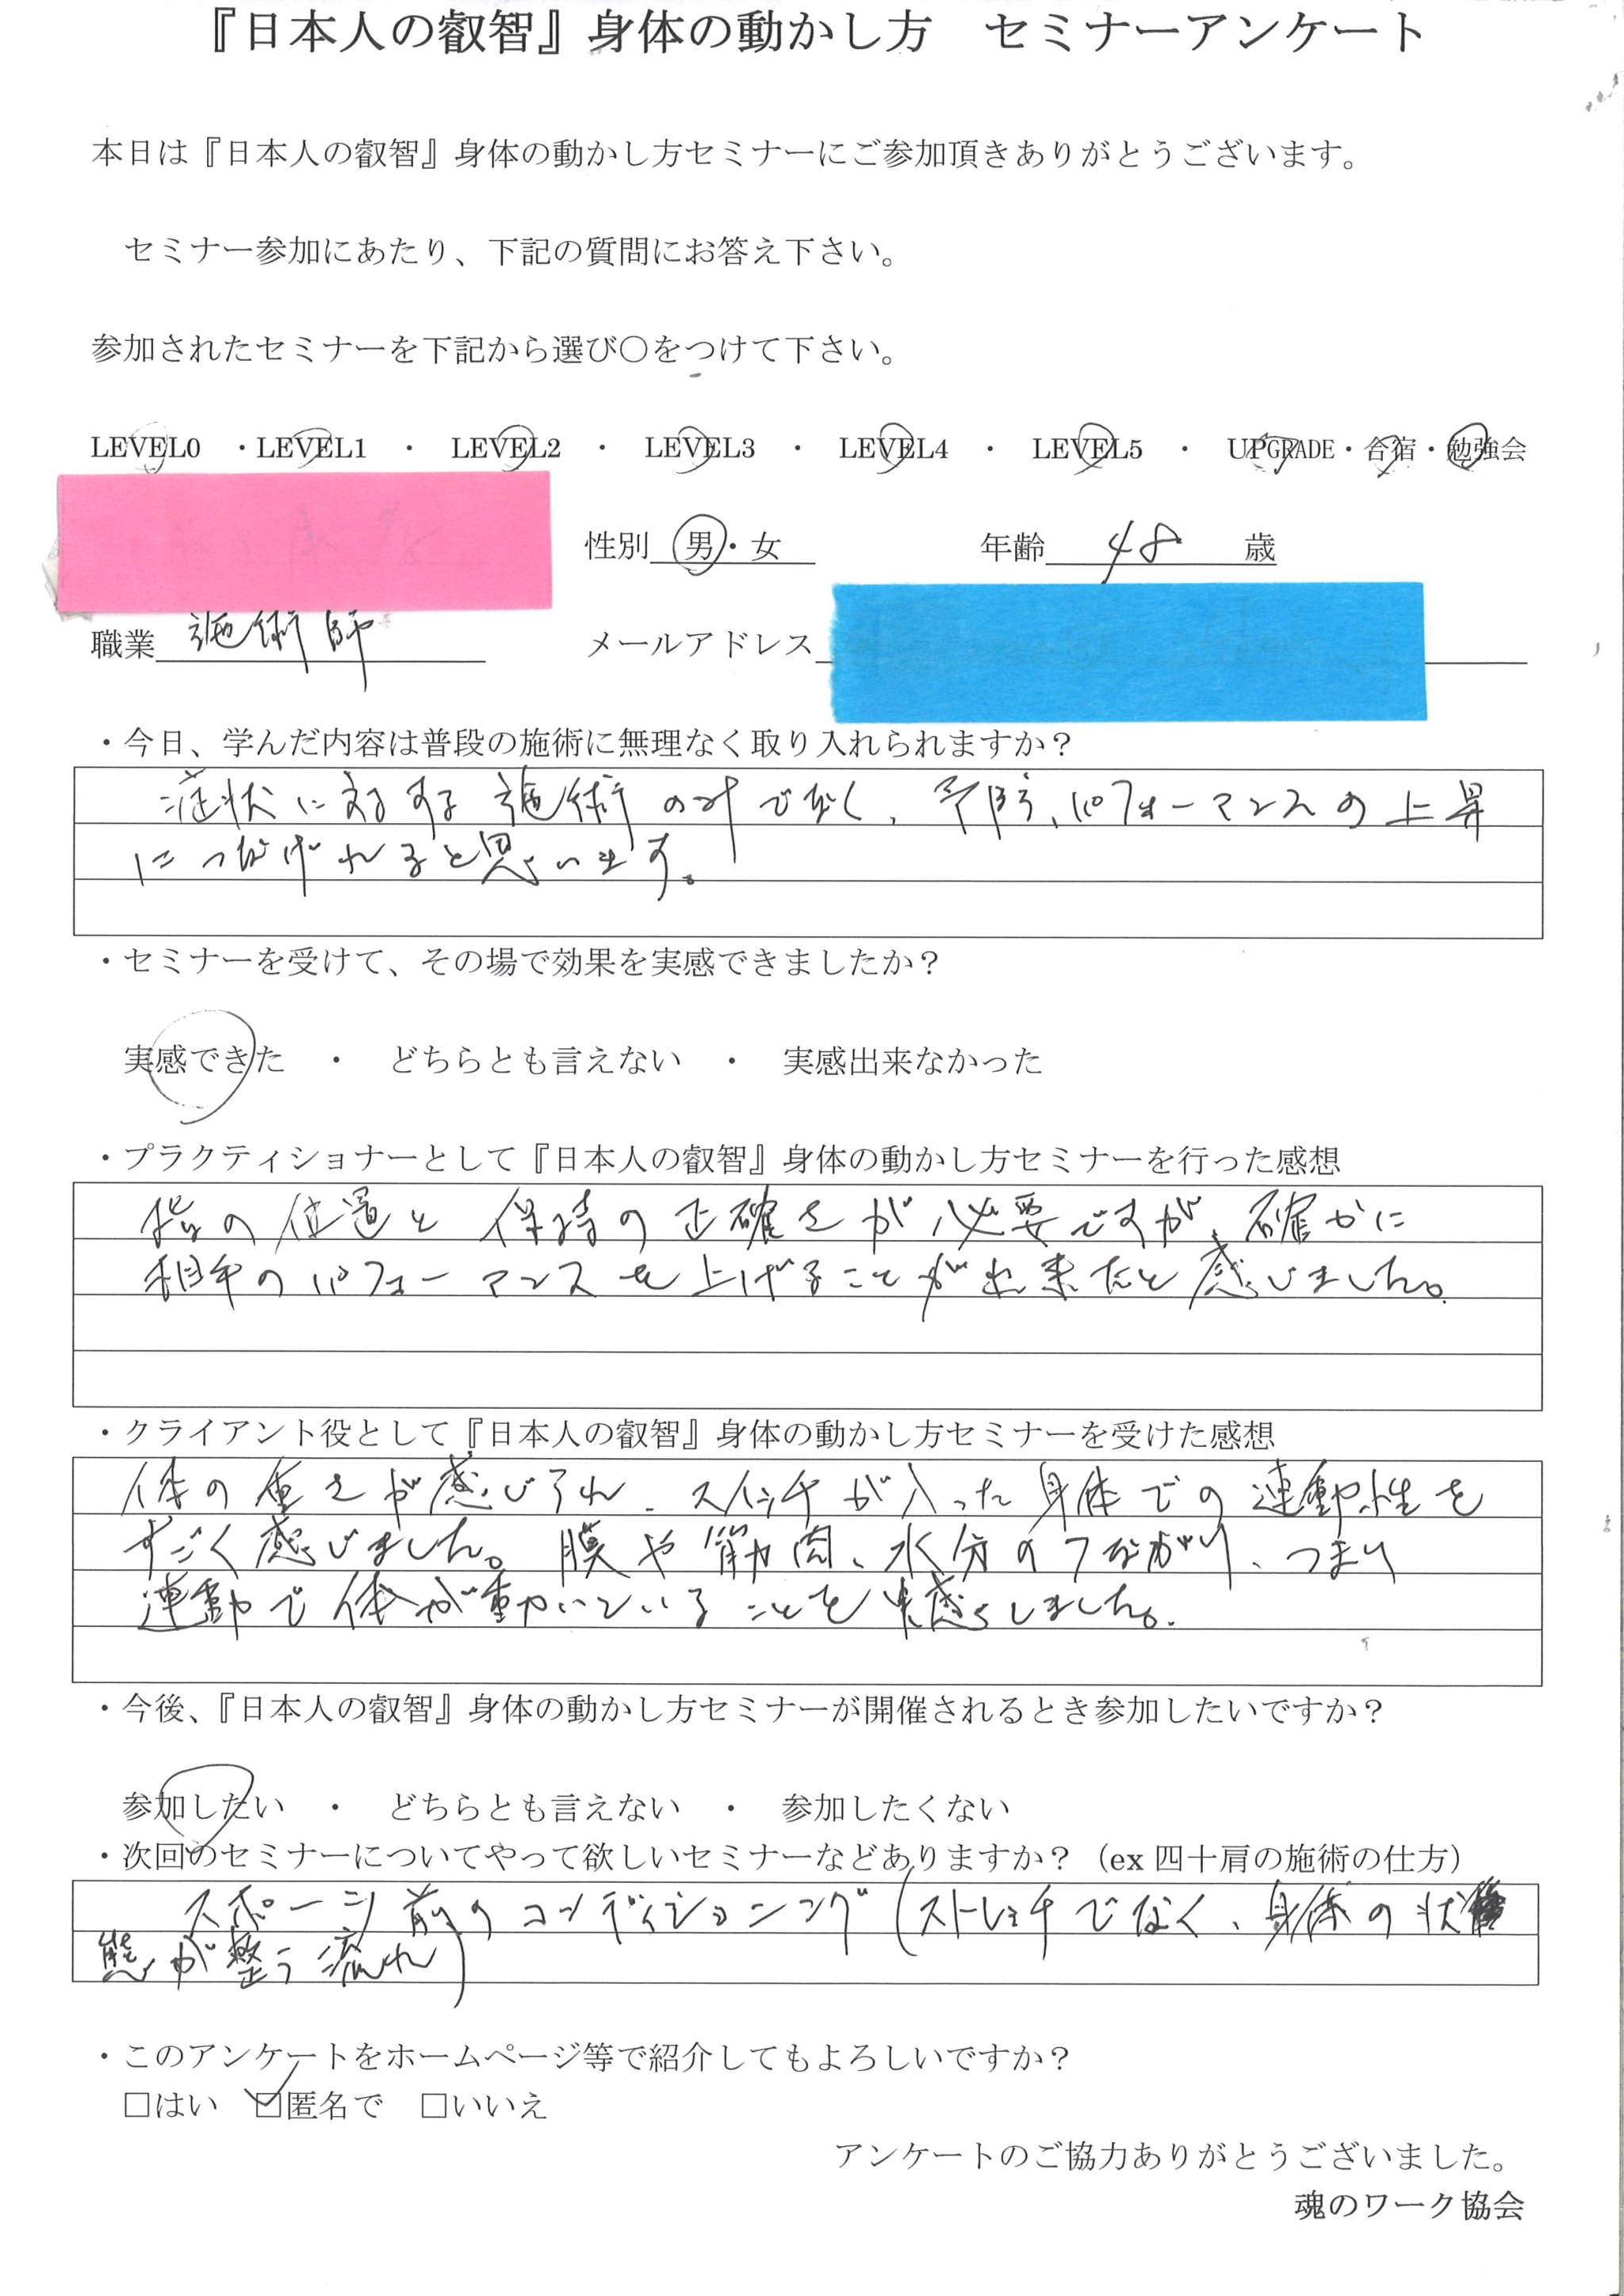 『日本人の叡智』身体の動かし方　セミナーアンケート
本日は『日本人の叡智』身体の動かし方セミナーにご参加頂きありがとうございます。
セミナー参加にあたり、下記の質問にお答え下さい。
参加されたセミナーを下記から選び〇をつけて下さい。
LEVEL0　・LEVEL1　・　LEVEL2　・　LEVEL3　・　LEVEL4　・　LEVEL5　・　UPGRADE・合宿・勉強会
性別　男・女　年齢　48　歳
職業　施術師　メールアドレス
・今日、学んだ内容は普段の施術に無理なく取り入れられますか？
症状に対する施術のみでなく、予防、パフォーマンスの上昇
につなげれると思います。
・セミナーを受けて、その場で効果を実感できましたか？
実感できた　・　どちらとも言えない　・　実感出来なかった
・プラクティショナーとして『日本人の叡智』身体の動かし方セミナーを行った感想
指の位置と保持の正確さが必要ですが、確かに
相手のパフォーマンスを上げることが出来たと感じました。
・クライアント役として『日本人の叡智』身体の動かし方セミナーを受けた感想
体の重さが感じられ、スイッチが入った身体での連動性を
すごく感じました。膜や筋肉、水分のつながり、つまり
連動で体が動いていることを実感しました。
・今後、『日本人の叡智』身体の動かし方セミナーが開催されるとき参加したいですか？
参加したい　・　どちらとも言えない　・　参加したくない
・次回のセミナーについてやって欲しいセミナーなどありますか？（ex 四十肩の施術の仕方）
スポーツ前のコンディショニング（ストレッチでなく、身体の状
態が整う流れ）
・このアンケートをホームページ等で紹介してもよろしいですか？
□はい　☑匿名で　□いいえ
アンケートのご協力ありがとうございました。
魂のワーク協会